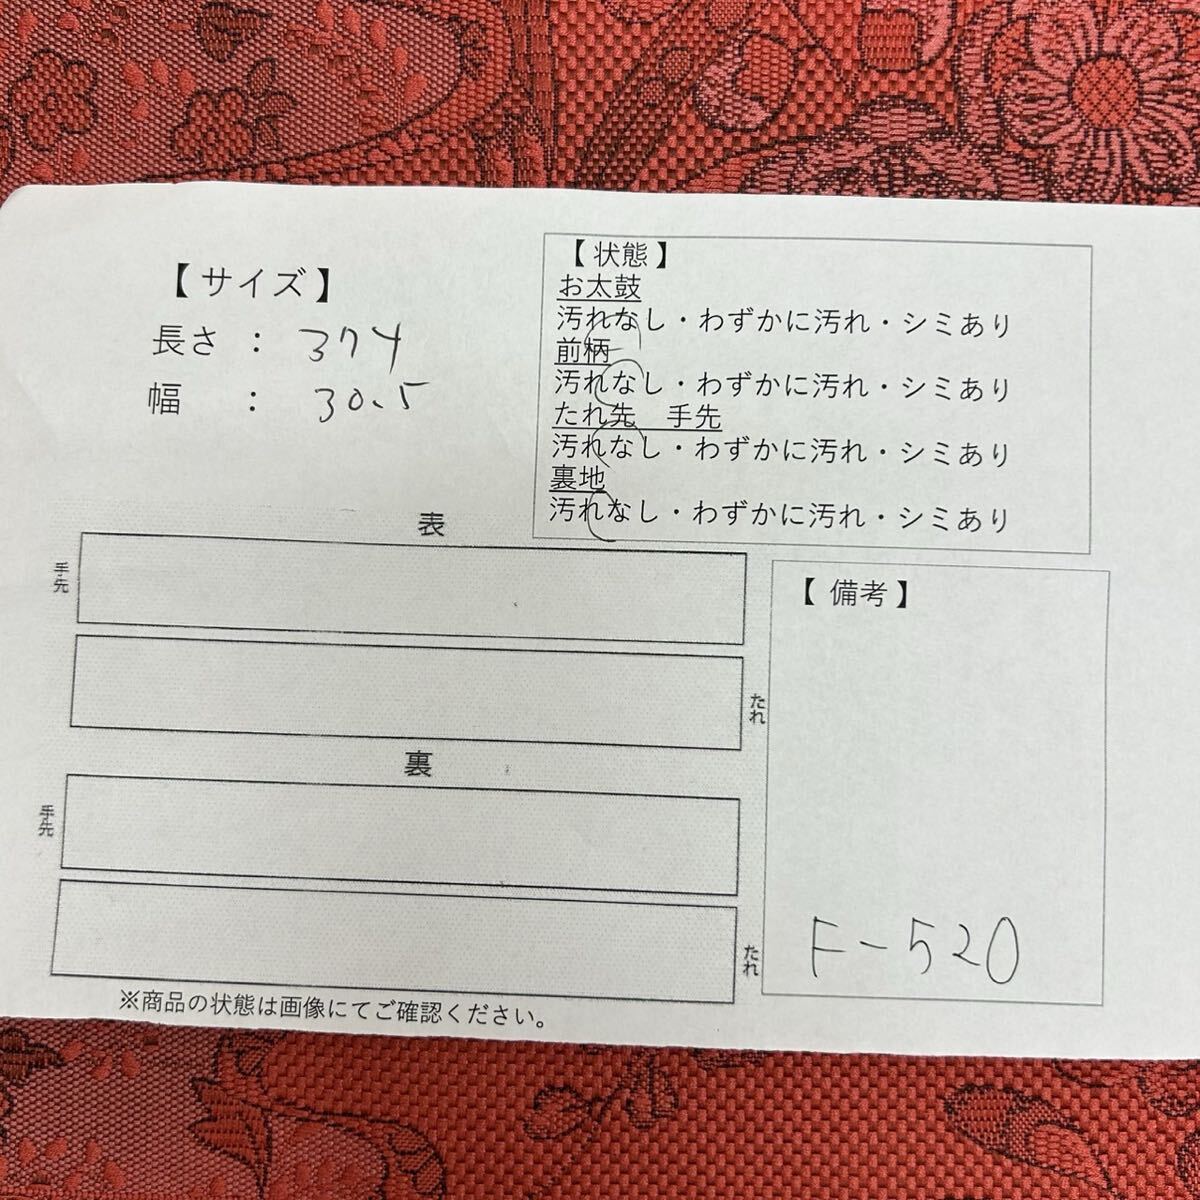 【サイズ】
長さ : 374
幅 : 30.5
【状態】
お太鼓
汚れなし・わずかに汚れ・シミあり
前柄
汚れなし・わずかに汚れ・シミあり
たれ先 手先
汚れなし・わずかに汚れ・シミあり
裏地
汚れなし・わずかに汚れ・シミあり
表
手先
たれ
裏
手先
たれ
※商品の状態は画像にてご確認ください。
【備考】
F-520